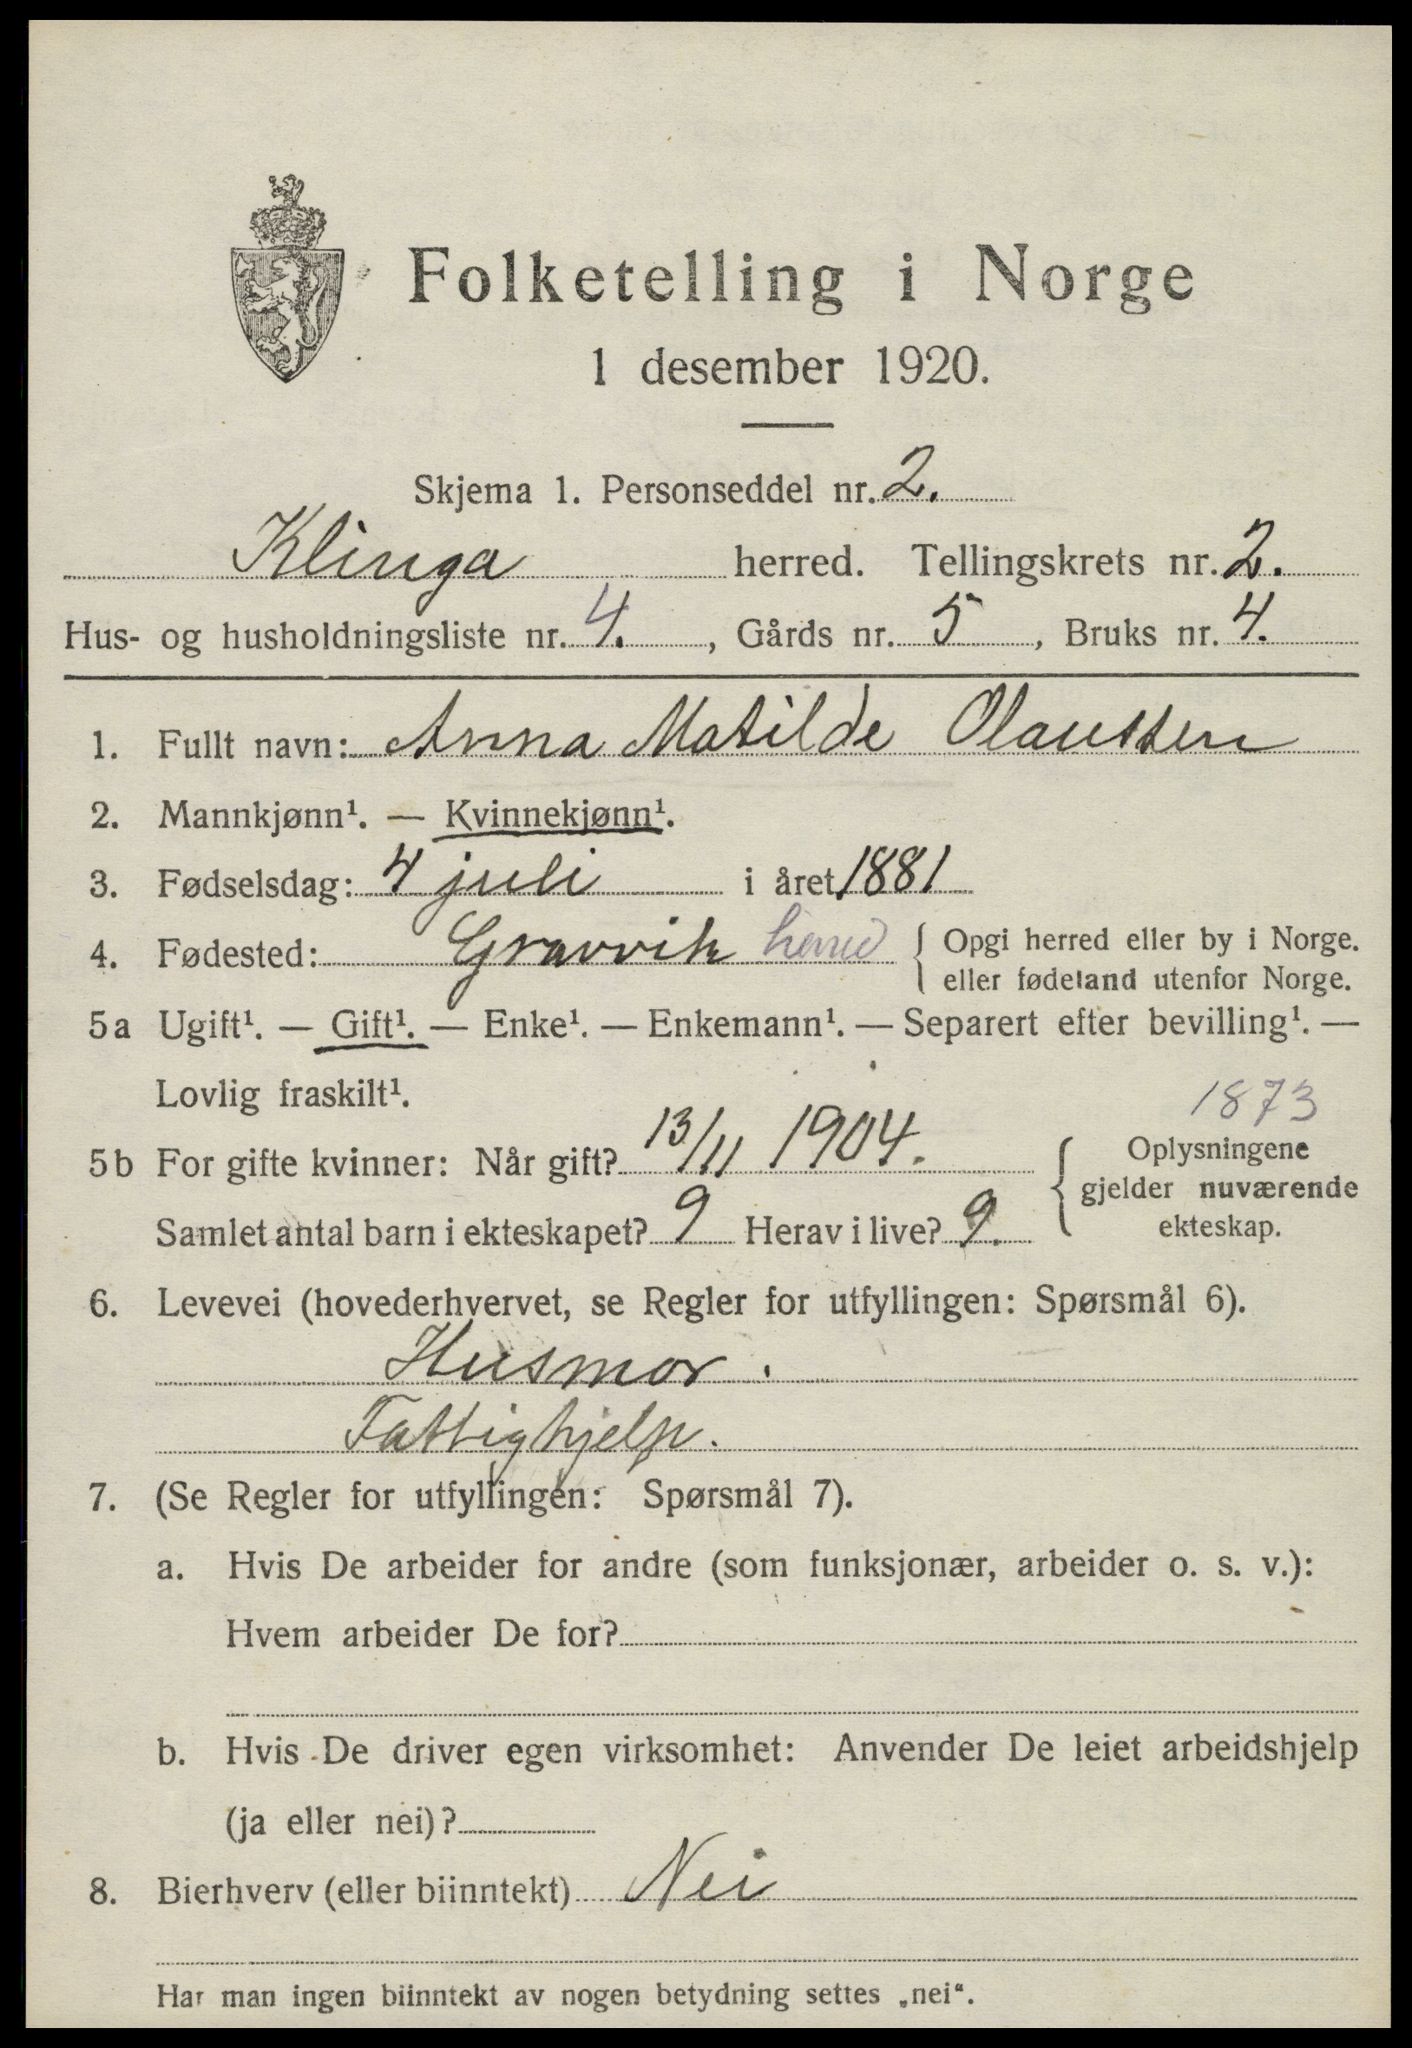 Folketelling i Norge
1 desember 1920.
Skjema 1. Personseddel nr. 2.
Klinga herred. Tellingskrets nr. 2.
Hus- og husholdningsliste nr. 4. , Gårds nr. 5 , Bruks nr. 4.
1. Fullt navn: Anna Matilde Olaussen
2. Mannkjønn¹. — Kvinnekjønn¹.
3. Fødselsdag: 4 juli i året 1881
4. Fødested: Gravvik herred { Opgi herred eller by i Norge.
eller fødeland utenfor Norge.
5a Ugift¹. — Gift¹. — Enke¹. — Enkemann¹. — Separert efter bevilling¹. —
Lovlig fraskilt¹.
1873
5b For gifte kvinner: Når gift? 13/11 1904. { Oplysningene
gjelder nuværende
ekteskap.
Samlet antal barn i ekteskapet? 9 Herav i live? 9.
6. Levevei (hovederhvervet, se Regler for utfyllingen: Spørsmål 6).
Husmor.
Fattighjelp.
7. (Se Regler for utfyllingen: Spørsmål 7).
a. Hvis De arbeider for andre (som funksjonær, arbeider o. s. v.):
Hvem arbeider De for?
b. Hvis De driver egen virksomhet: Anvender De leiet arbeidshjelp
(ja eller nei)?
8. Bierhverv (eller biinntekt) Nei
Har man ingen biinntekt av nogen betydning settes „nei“.